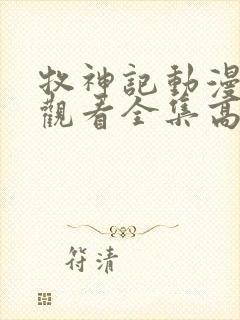 牧神記動漫
觀看全集高
符清